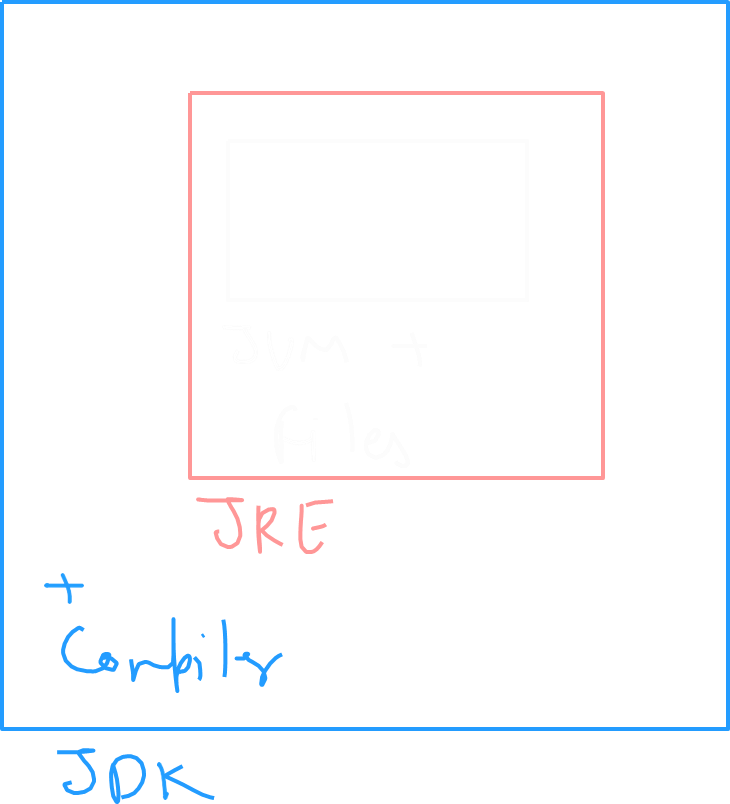 JVM +
files
JRE
+
Compiler
JDK